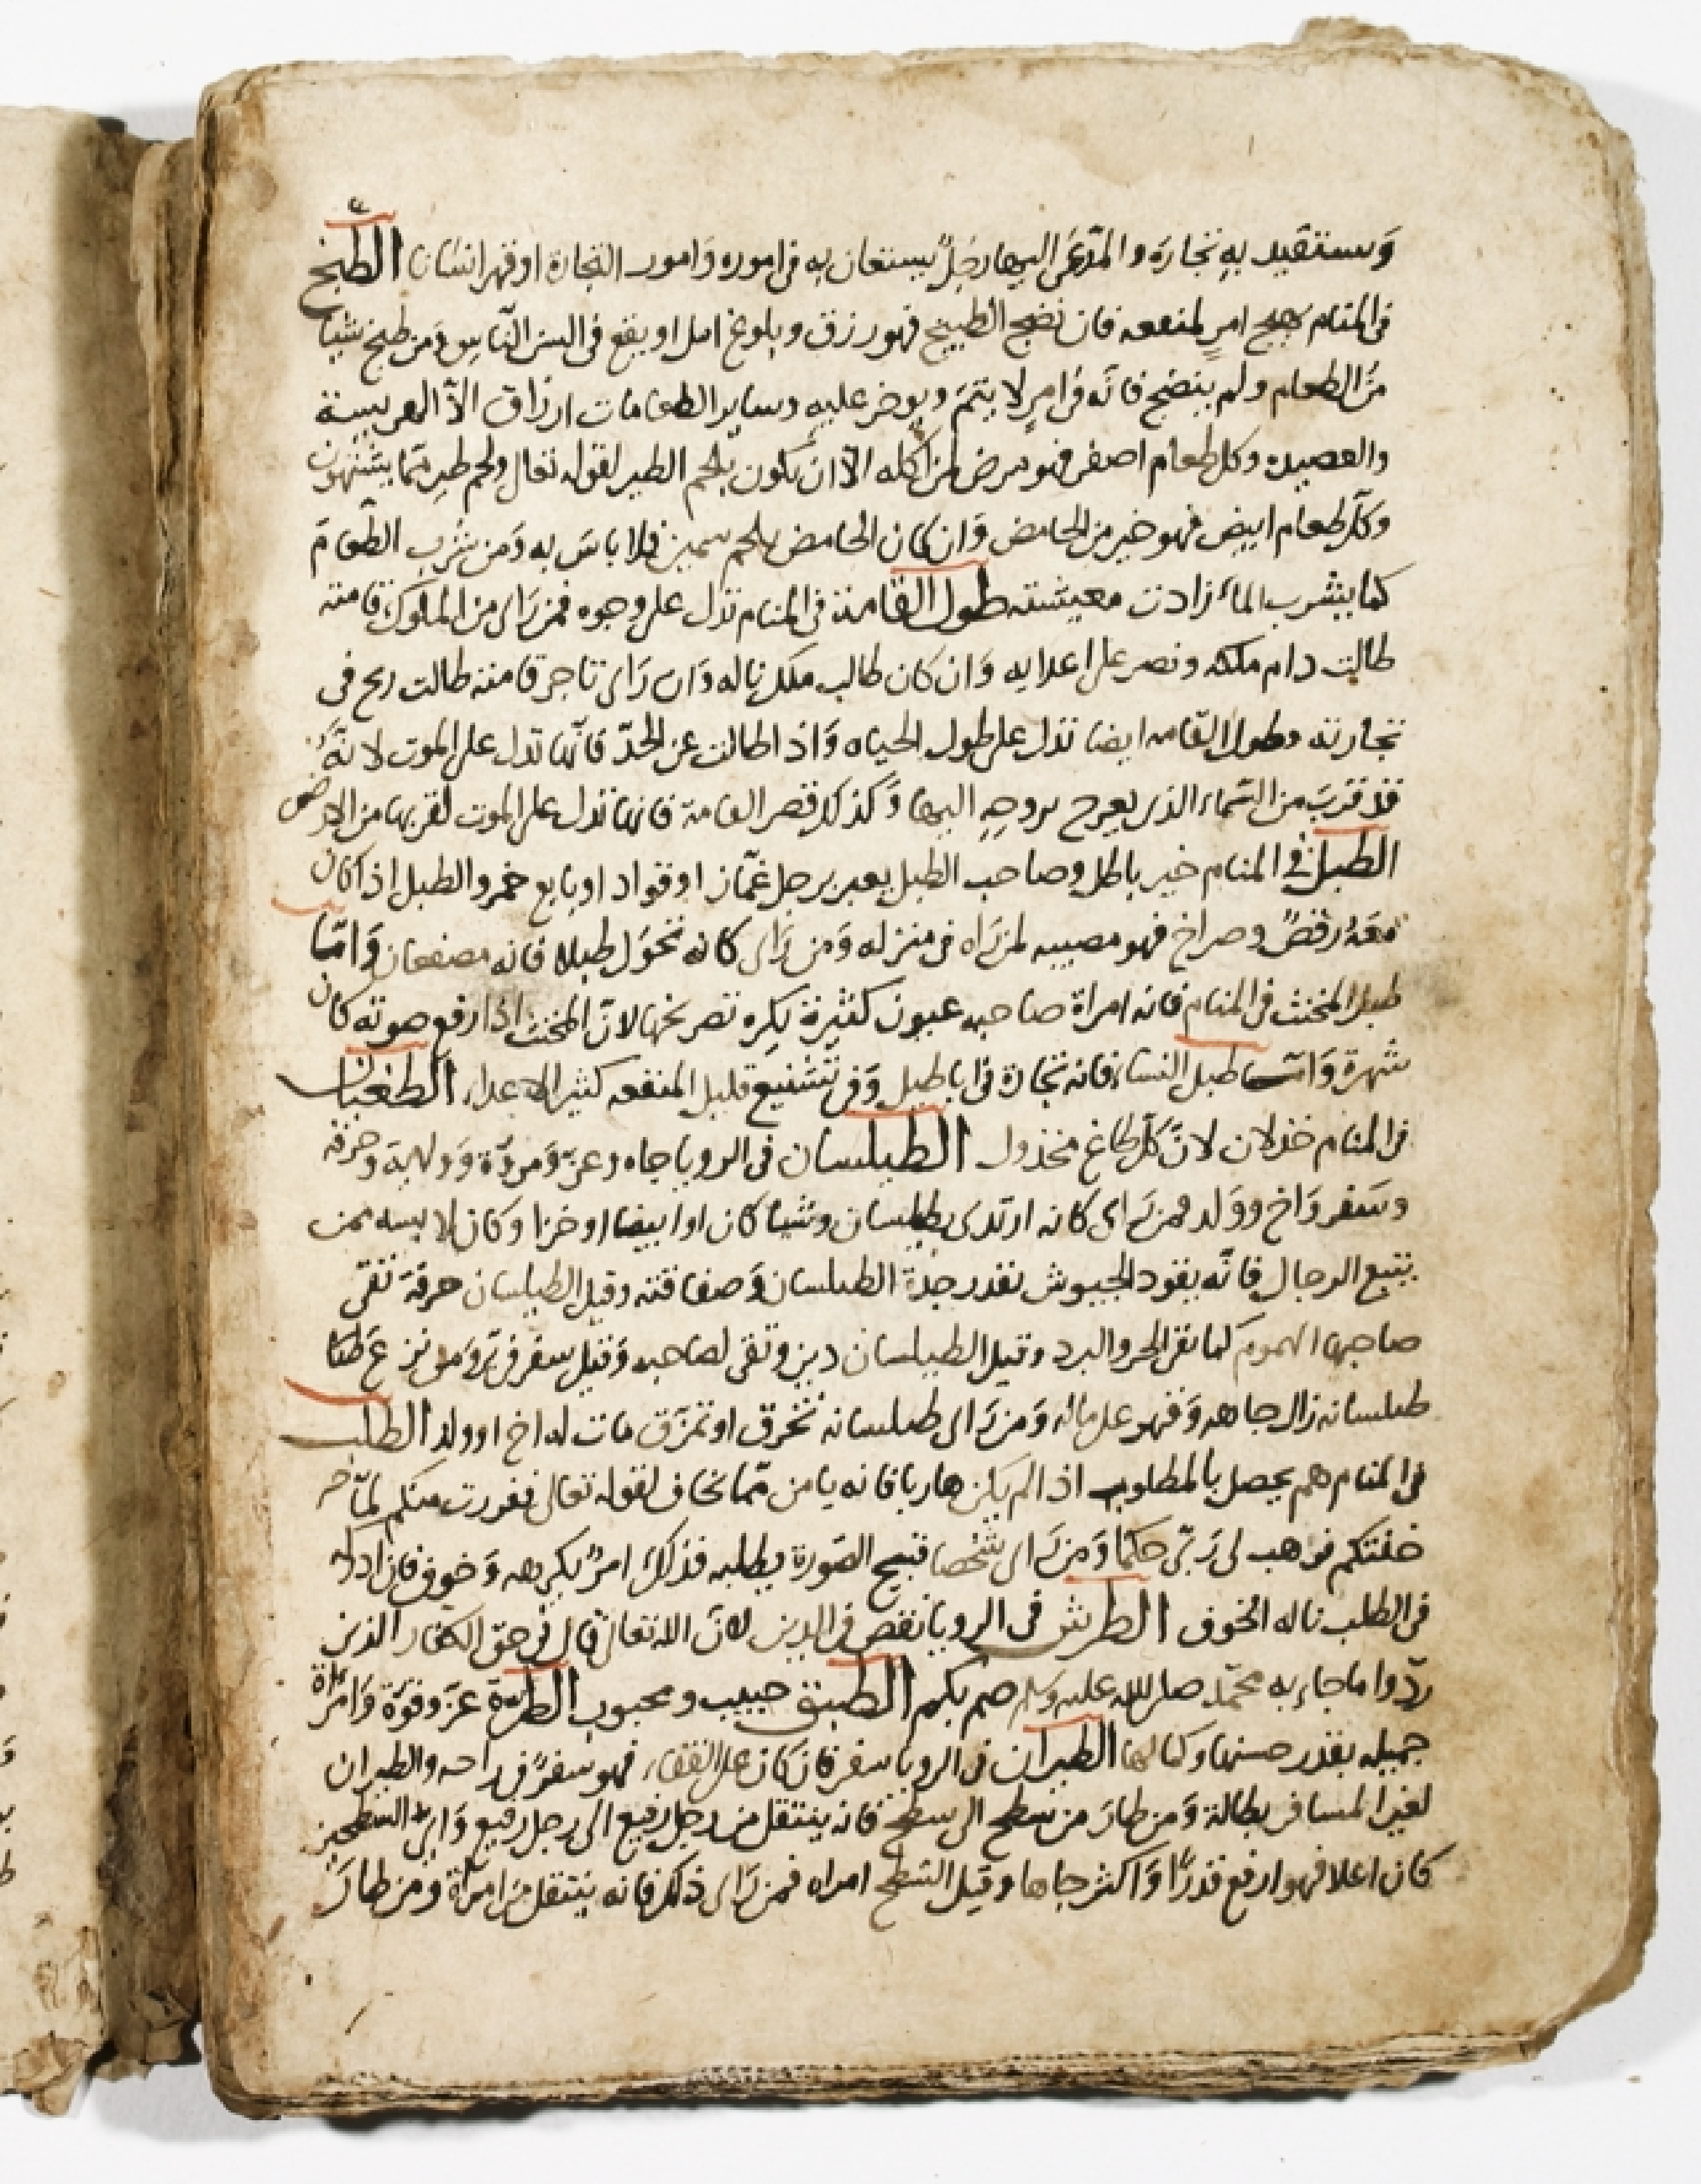 وستفيد به تجارة والمدعى اليها رجل يستعان به في اموره وامور التجارة او قهر انسان الطبخ
في المنام هيج امر لمنفعه فان نضج الطبيخ فهو رزق وبلوغ امل او يقع في السن الناس ومن طبخ شيا
من الطعام ولم ينضج فانه في امر لا يتم ويوخر عليه وساير الطعامات ارزاق الا الهريسة
والعصيدة وكل طعام اصفر فهو مرض لمن اكله الا ان يكون بلحم الطير لقوله تعالى ولحم طير مما يشتهون
وكل طعام ابيض فهو خير من الحامض وان كان الحامض بلحم سمين فلا باس به ومن شرب الطعام
كما يشرب الماء زادت معيشته طول القامة في المنام تدل على وجوه فمن راى من الملوك قامته
طالت دام ملكه ونصر على اعدايه وان كان طالب ملك ناله وان راى تاجر قامته طالت ربح في
تجارته وطول القامه ايضا تدل على طول الحياه واذا طالت عن الحد فانها تدل على الموت لانه
قد قرب من السماء الذي يعرج بروحه اليها وكذلك قصر القامة فانها تدل على الموت لقربها من الارض
الطبل في المنام خبر باطل وصاحب الطبل يعبر برجل غماز او قواد او بايع خمر والطبل اذا كان
معه رقص وصراخ فهو مصيبه لمن راه في منزله ومن راى كانه تحول طبلا فانه صفعان واما
طبل المخنث في المنام فانه امراة صاحبه عيوب كثيرة يكره تصريحها لان المخنث اذا رفع صوته كان
شهرة واما طبل النساء فانه تجارة في اباطيل وفي تشنيع قليل المنفعه كثير الاعداء الطغيان
في المنام خذلان لان كل طاغ مخذول الطيلسان في الرويا جاه وعز ومروة وولهية وحرفة
وسفر واخ وولد فمن راى كانه ارتدى بطيلسان وشيا كان او ابيضا او خزا وكان لابسه ممن
يتبع الرجال فانه يقود الجيوش بقدر جدة الطيلسان وصفاقته وقيل الطيلسان حرفة تقي
صاحبها الهموم كما تقي الحر والبرد وقيل الطيلسان دين وتقى لصاحبه وقيل سفر في بر ومن نزع عطا
طيلسانه زال جاهه وقهو على ماله ومن راى طيلسانه تخرق او تمزق مات له اخ او ولد الطلب
في المنام هم يحصل بالمطلوب اذا لم يكن هاربا فانه يامن مما يخاف لقوله تعالى ففررت منكم لما
خفتكم فوهب لي ربي حكما ومن راى شخصا قبيح الصورة يطلبه فذلك امر يكرهه وخوف فان ادركه
في الطلب ناله الخوف الطرش في الرويا نقص في الدين لان الله تعالى قال في حق الكفار الذين
ردوا ما جاء به محمد صلى الله عليه وسلم صم بكم الطبق حبيب ومحبوب الطرة عز وقوة وامراة
جميله بقدر حسنها وكمالها الطيران في الرويا سفر فان كان على القفاء فهو سفر في راحه والطيران
لغير المسافر بطالة ومن طار من سطح الى سطح فانه ينتقل من رجل رفيع الى رجل رفيع واي السطحين
كان اعلا فهو ارفع قدرا واكثر جاها وقيل السطح امراه فمن راى ذلك فانه ينتقل من امراة ومن طار